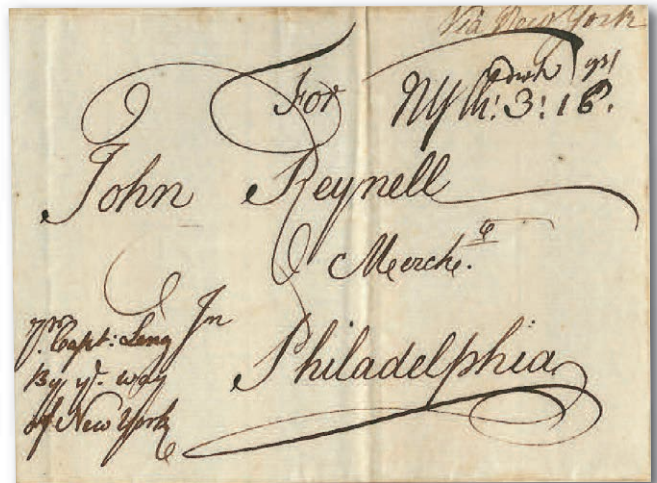 Via New York
For
NY
3: 16
John Reynell
Merch.
In
Philadelphia
Capt: Leng
By yᵉ. way
of New York